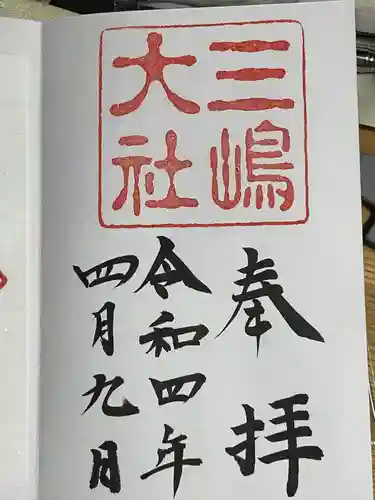 三嶋
大社
奉拝
令和四年
四月九月